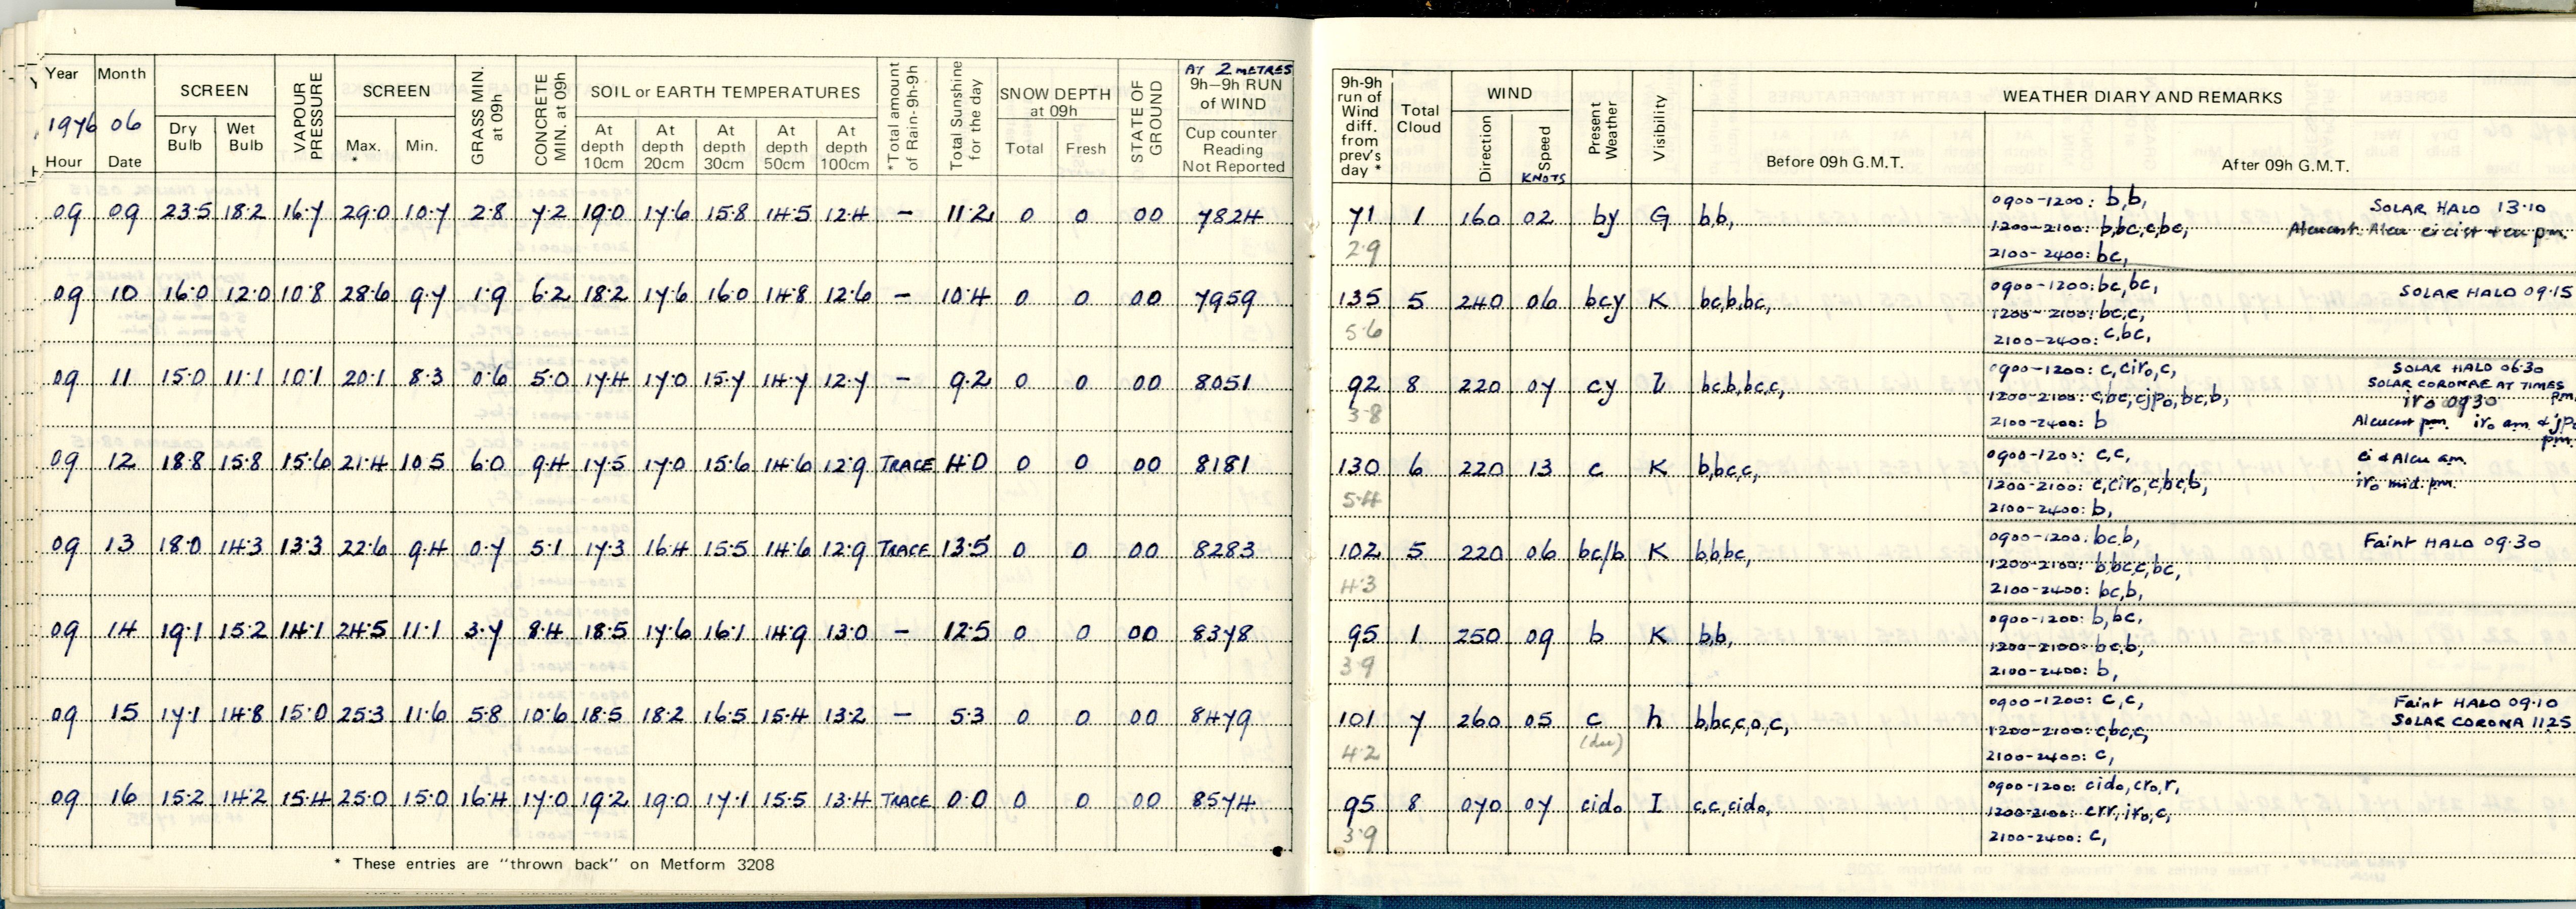 AT 2 METRES
Year Month SCREEN VAPOUR PRESSURE SCREEN GRASS MIN. at 09h CONCRETE MIN. at 09h SOIL or EARTH TEMPERATURES *Total amount of Rain-9h-9h Total Sunshine for the day SNOW DEPTH at 09h STATE OF GROUND 9h–9h RUN of WIND
1976 06 Dry Bulb Wet Bulb Max. * Min. At depth 10cm At depth 20cm At depth 30cm At depth 50cm At depth 100cm Total Fresh Cup counter Reading Not Reported
Hour Date
09 09 23.5 18.2 16.7 29.0 10.7 2.8 7.2 19.0 17.6 15.8 14.5 12.4 – 11.2 0 0 00 7824
09 10 16.0 12.0 10.8 28.6 9.7 1.9 6.2 18.2 17.6 16.0 14.8 12.6 – 10.4 0 0 00 7959
09 11 15.0 11.1 10.1 20.1 8.3 0.6 5.0 17.4 17.0 15.7 14.7 12.7 – 9.2 0 0 00 8051
09 12 18.8 15.8 15.6 21.4 10.5 6.0 9.4 17.5 17.0 15.6 14.6 12.9 TRACE 4.0 0 0 00 8181
09 13 18.0 14.3 13.3 22.6 9.4 0.7 5.1 17.3 16.4 15.5 14.6 12.9 TRACE 13.5 0 0 00 8283
09 14 19.1 15.2 14.1 24.5 11.1 3.7 8.4 18.5 17.6 16.1 14.9 13.0 – 12.5 0 0 00 8378
09 15 17.1 14.8 15.0 25.3 11.6 5.8 10.6 18.5 18.2 16.5 15.4 13.2 – 5.3 0 0 00 8479
09 16 15.2 14.2 15.4 25.0 15.0 16.4 17.0 19.2 19.0 17.1 15.5 13.4 TRACE 0.0 0 0 00 8574
* These entries are "thrown back" on Metform 3208
9h-9h run of Wind diff. from prev's day * Total Cloud WIND Present Weather Visibility WEATHER DIARY AND REMARKS
Direction Speed KNOTS Before 09h G.M.T. After 09h G.M.T.
0900-1200: b,b, SOLAR HALO 13.10
71 1 160 02 by G b,b,
1200-2100: b,bc,c,bc, ci cist + cu pm.
2.9 2100-2400: bc,
0900-1200: bc,bc, SOLAR HALO 09.15
135 5 240 06 bcy K bc,b,bc,
1200-2100: bc,c,
5.6 2100-2400: c,bc,
0900-1200: c,ciro,c, SOLAR HALO 06.30
SOLAR CORONAE AT TIMES pm.
92 8 220 07 cy bc,b,bc,c,
1200-2100: c,bc,cjpo,bc,b, iro 0930
3.8 2100-2400: b Alcucast pm. iro am. & jpo pm.
0900-1200: c,c, ci & Alcu am.
130 6 220 13 c K b,bc,c,
1200-2100: c,ciro,c,bc,b, iro mid. pm.
5.4 2100-2400: b,
0900-1200: bc,b, Faint HALO 09.30
102 5 220 06 bc/b K b,b,bc,
1200-2100: b,bc,c,bc,
4.3 2100-2400: bc,b,
0900-1200: b,bc,
95 1 250 09 b K b,b,
1200-2100: bc,b,
3.9 2100-2400: b,
0900-1200: c,c, Faint HALO 09.10
101 7 260 05 c h b,bc,c,o,c, SOLAR CORONA 1125
1200-2100: c,bc,c,
(dew)
4.2 2100-2400: c,
0900-1200: cido,cro,r,
95 8 070 07 cido I c,c,cido,
1200-2100: crr,iro,c,
3.9 2100-2400: c,